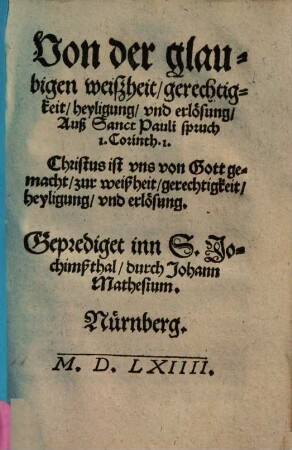 Von der glau-
bigen weißheit/gerechtig-
keit/heyligung/vnd erlösung/
Auß Sanct Pauli spruch
1. Corinth. 1.
Christus ist vns von Gott ge-
macht/zur weißheit/gerechtigkeit/
heyligung/vnd erlösung.
Geprediget inn S. Jo-
chimßthal/durch Johann
Mathesium.
Nürnberg.
M. D. LXIIII.